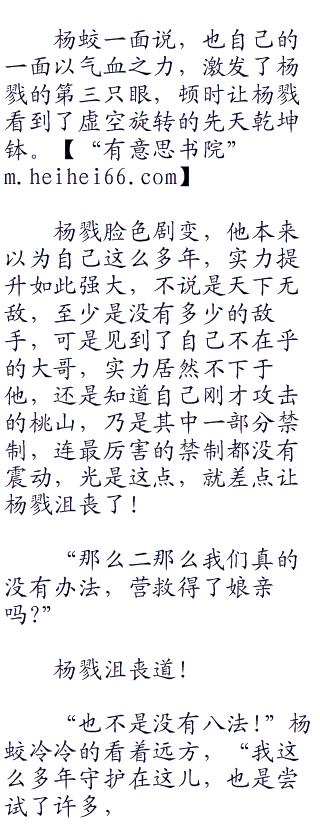 杨蛟一面说，也自己的
一面以气血之力，激发了杨
戮的第三只眼，顿时让杨戮
看到了虚空旋转的先天乾坤
钵。【“有意思书院”
m.heihei66.com】
杨戮脸色剧变，他本来
以为自己这么多年，实力提
升如此强大，不说是天下无
敌，至少是没有多少的敌
手，可是见到了自己不在乎
的大哥，实力居然不下于
他，还是知道自己刚才攻击
的桃山，乃是其中一部分禁
制，连最厉害的禁制都没有
震动，光是这点，就差点让
杨戮沮丧了！
“那么二那么我们真的
没有办法，营救得了娘亲
吗?”
杨戮沮丧道！
“也不是没有八法！”杨
蛟冷冷的看着远方，“我这
么多年守护在这儿，也是尝
试了许多，